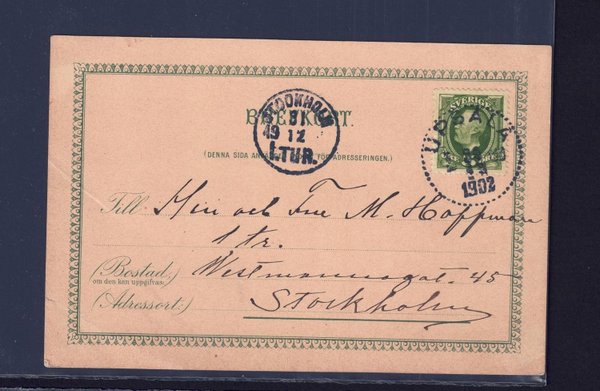 BREFKORT.
STOCKHOLM
31
19 12
1.TUR.
SVERIGE
UPSALA
1902
(DENNA SIDA FÖR ADRESSERINGEN.)
Till Herr och Fru M. Hoffman
1 tr.
(Bostad:
om den kan uppgifvas:) Westmannagat. 45
(Adressort:) Stockholm